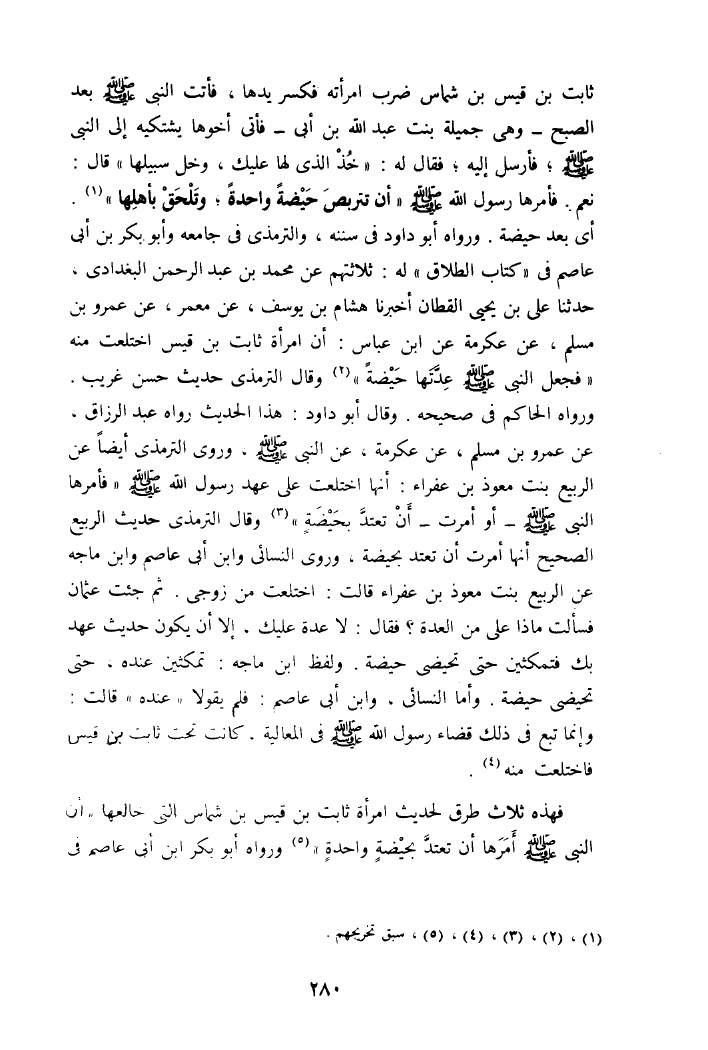 ثابت بن قيس بن شماس ضرب امرأته فكسر يدها ، فأتت النبى ﷺ بعد
الصبح – وهى جميلة بنت عبد الله بن أبى – فأتى أخوها يشتكيه إلى النبى
ﷺ ؛ فأرسل إليه ؛ فقال له : « خُذْ الذى لها عليك ، وخل سبيلها » قال :
نعم . فأمرها رسول الله ﷺ « أن تتربصَ حَيْضةً واحدةً ؛ وتَلْحَقْ بأهلِها » (١) .
أى بعد حيضة . ورواه أبو داود فى سننه ، والترمذى فى جامعه وأبو بكر بن أبى
عاصم فى «كتاب الطلاق » له : ثلاثتهم عن محمد بن عبد الرحمن البغدادى ،
حدثنا على بن يحيى القطان أخبرنا هشام بن يوسف ، عن معمر ، عن عمرو بن
مسلم ، عن عكرمة عن ابن عباس : أن امرأة ثابت بن قيس اختلعت منه
« فجعل النبى ﷺ عِدَّتَها حَيْضةً » (٢) وقال الترمذى حديث حسن غريب .
ورواه الحاكم فى صحيحه . وقال أبو داود : هذا الحديث رواه عبد الرزاق ،
عن عمرو بن مسلم ، عن عكرمة ، عن النبى ﷺ . وروى الترمذى أيضاً عن
الربيع بنت معوذ بن عفراء : أنها اختلعت على عهد رسول الله ﷺ « فأمرها
النبى ﷺ – أو أمرت – أَنْ تعتدَّ بحَيْضَةٍ » (٣) وقال الترمذى حديث الربيع
الصحيح أنها أمرت أن تعتد بحيضة ، وروى النسائى وابن أبى عاصم وابن ماجه
عن الربيع بنت معوذ بن عفراء قالت : اختلعت من زوجى . ثم جئت عثمان
فسألت ماذا على من العدة ؟ فقال : لا عدة عليك . إلا أن يكون حديث عهد
بك فتمكثين حتى تحيضى حيضة . ولفظ ابن ماجه : تمكثين عنده . حتى
تحيضى حيضة . وأما النسائى . وابن أبى عاصم : فلم يقولا « عنده » قالت :
وإنما تبع فى ذلك قضاء رسول الله ﷺ فى المغالية . كانت تحت ثابت بن قيس
فاختلعت منه (٤) .
فهذه ثلاث طرق لحديث امرأة ثابت بن قيس بن شماس التى خالعها « أن
النبى ﷺ أَمَرَها أن تعتدَّ بحَيْضةٍ واحدةٍ » (٥) ورواه أبو بكر ابن أبى عاصم فى
(١) ، (٢) ، (٣) ، (٤) ، (٥) ، سبق تخريجهم .
٢٨٠